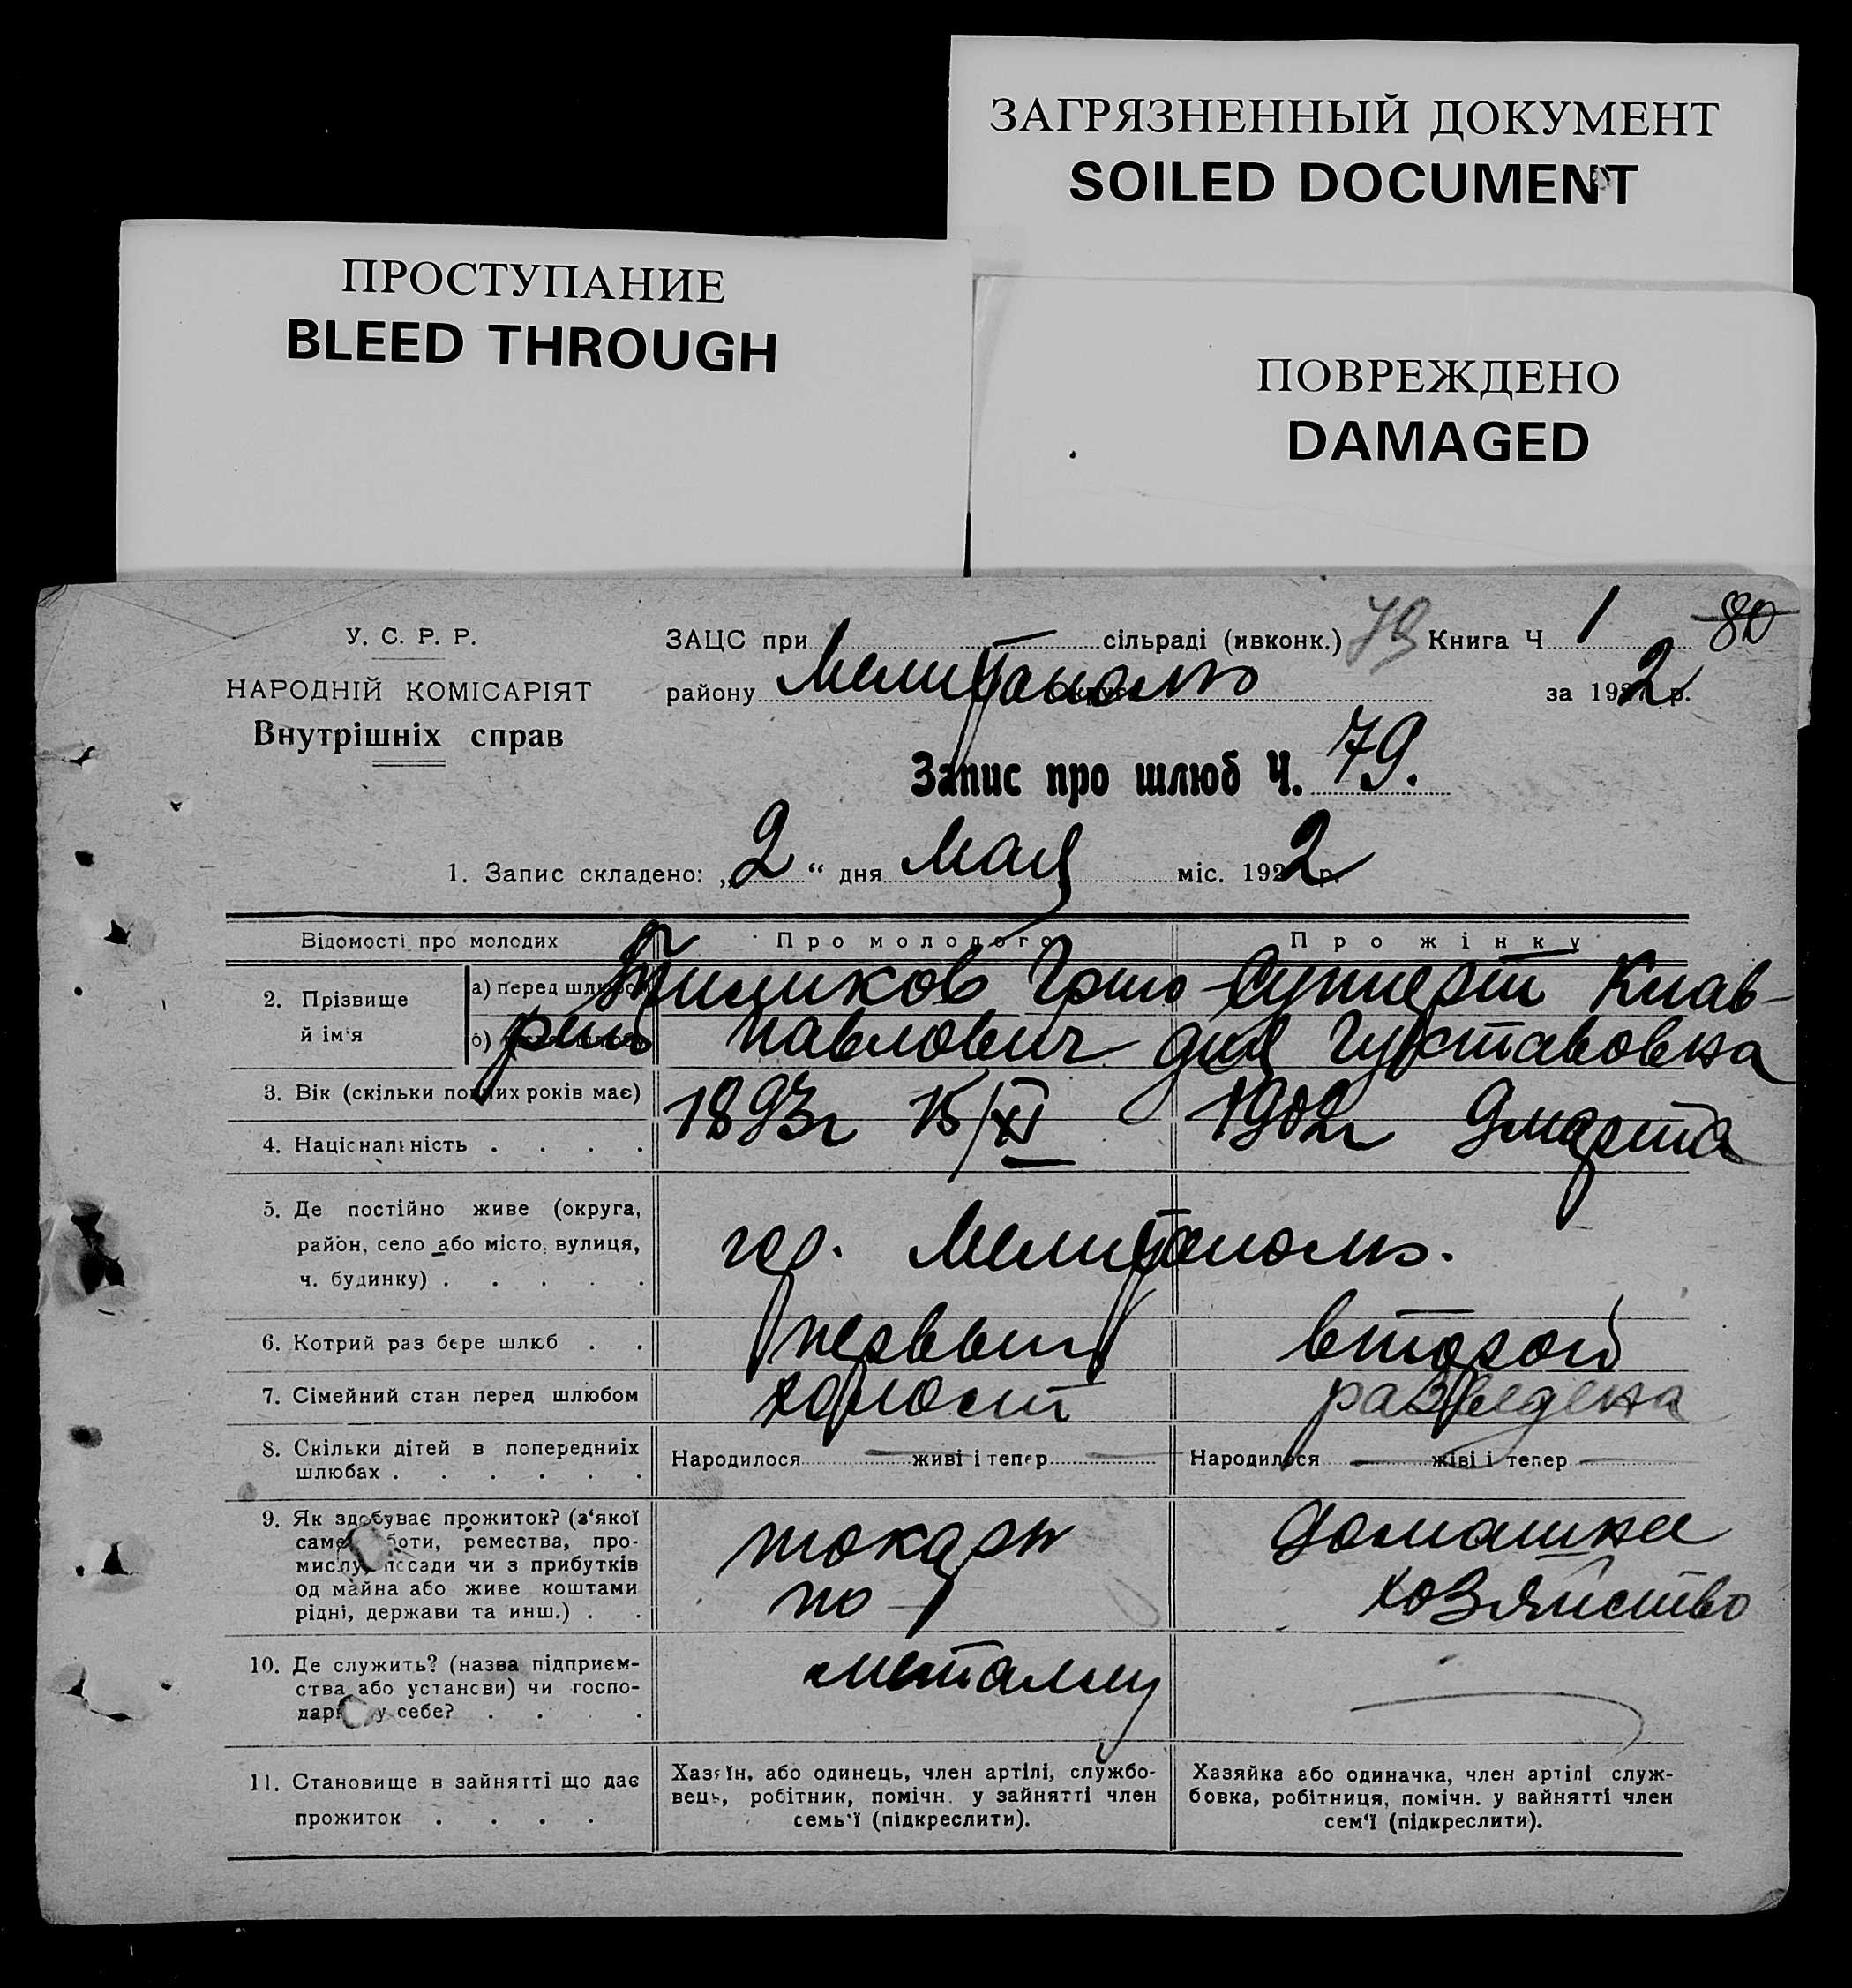 ЗАГРЯЗНЕННЫЙ ДОКУМЕНТ
SOILED DOCUMENT
ПРОСТУПАНИЕ
BLEED THROUGH
ПОВРЕЖДЕНО
DAMAGED
У. С. Р. Р.
НАРОДНІЙ КОМІСАРІЯТ
Внутрішніх справ
ЗАЦС при сільраді (ивконк.) 79 Книга Ч 1 80
району Мелитополь за 1922 р.
Запис про шлюб Ч. 79.
1. Запис складено: „2“ дня Мая міс. 1922 р.
Відомості про молодих
Про молодого
Про жінку
2. Прізвище й ім'я
а) перед шлюбом
б)
Григо
рий Павлович
Клав-
дия Густавовна
3. Вік (скільки повних років має)
1893г 15/XI
1902г 9 марта
4. Національність . . . .
5. Де постійно живе (округа,
район, село або місто, вулиця,
ч. будинку) . . . . .
гор. Мелитополь.
6. Котрий раз бере шлюб . .
первый
второй
7. Сімейний стан перед шлюбом
холост
разведена
8. Скільки дітей в попередніх
шлюбах . . . . . .
Народилося — живі і тепер —
Народилося — живі і тепер —
9. Як здобуває прожиток? (з'якої
саме роботи, ремества, про-
мислу, посади чи з прибутків
од майна або живе коштами
рідні, держави та инш.) . .
токарь
по
металлу
домашнее
хозяйство
10. Де служить? (назва підприєм-
ства або установи) чи госпо-
дарює у себе? . . . .
11. Становище в зайнятті що дає
прожиток . . . .
Хазяїн, або одинець, член артілі, службо-
вець, робітник, помічн. у зайнятті член
семь'ї (підкреслити).
Хазяйка або одиначка, член артілі служ-
бовка, робітниця, помічн. у зайнятті член
сем'ї (підкреслити).